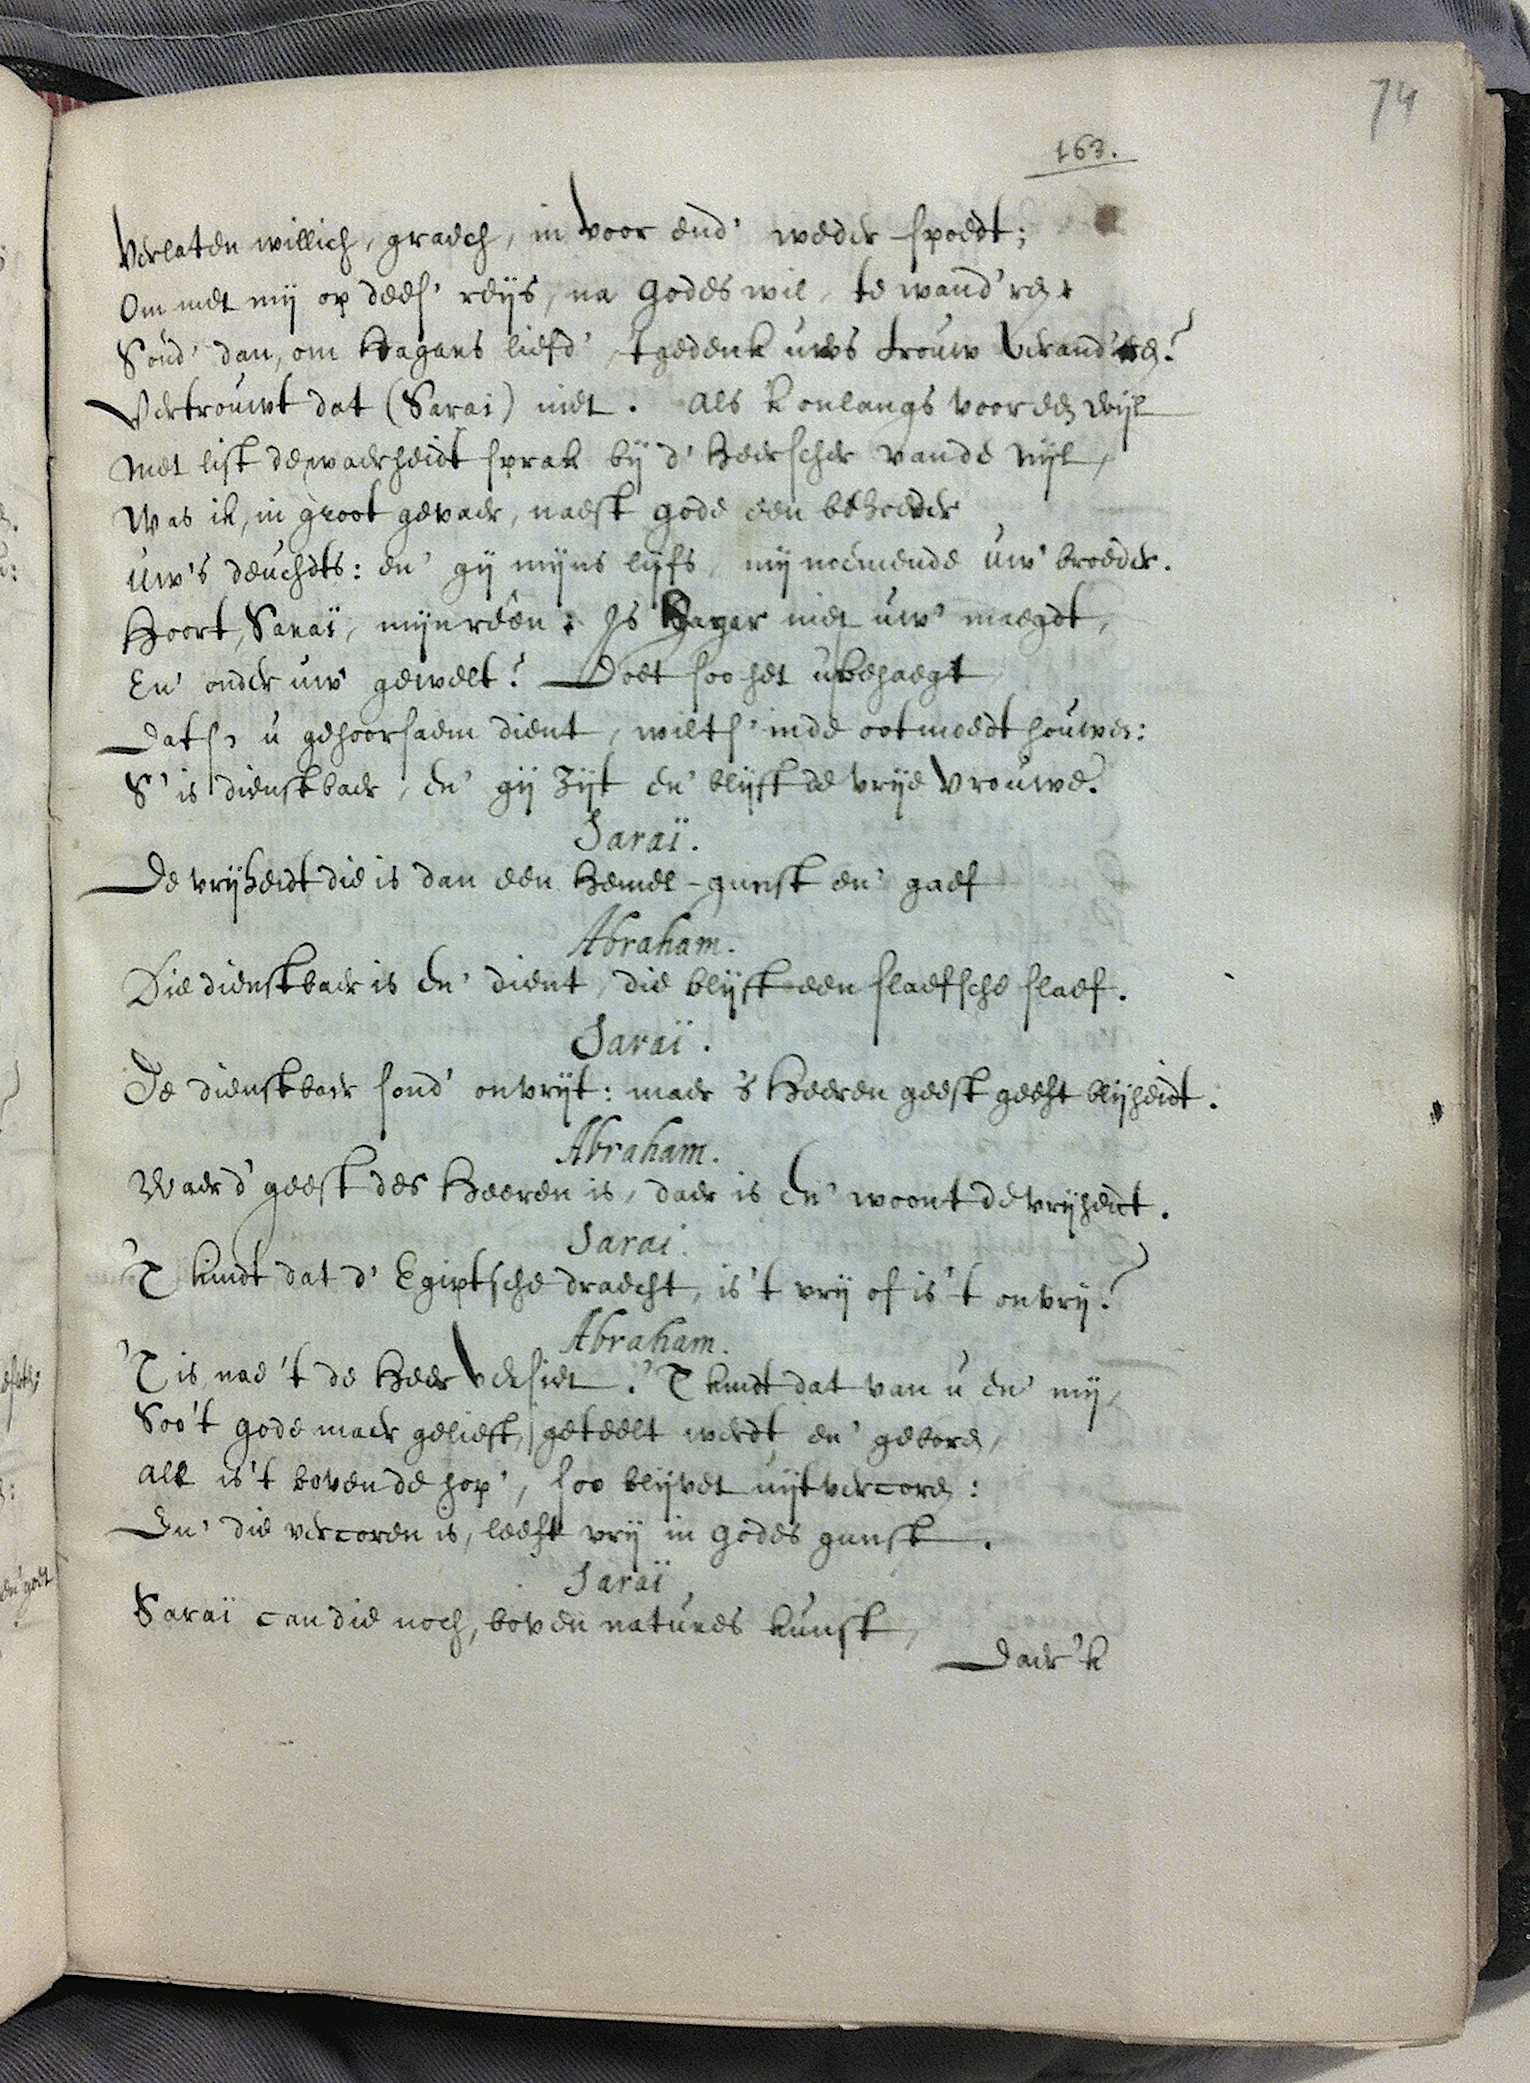 74
163.
Verlaten willich, graech, in voor end' weder-spoedt;
Om met mij op dees' reijs, na Godes wil, te wand'ren
Soud' dan, om Hagars liefd', tgedenk uwes trouw verand'ren?
Vertrouwt dat (Sarai) niet. Als 'k onlangs voor een wijl
Met list de waerheidt sprak bij d' Heerscher vande Nijl,
Was ik, in groot gevaer, naest Gode een behoeder
Uw's deuchdts: en' gij mijns lijfs, mij noemende uw' broeder.
Hoort, Saraï, mijn reên: Is Hagar niet uw' maegdt,
En' onder uw' gewelt? Doet soo het u behaegt
Dats' u gehoorsaem dient, wilts' inde ootmoedt houwen:
S' is dienstbaer, en' gij zijt en' blijft de vrije vrouwe.
Saraï.
De vrijheidt die is dan een Hemel-gunst en' gaef
Abraham.
Die dienstbaer is en' dient, die blijft een slaefsche slaef.
Saraï.
De dienstbaer sond' onvrijt: maer 's Heeren geest geeft blijheidt.
Abraham.
Waer d' geest des Heeren is, daer is en' woont de vrijheidt.
Sarai.
'T kindt dat d' Egiptsche draecht, is 't vrij of is 't onvrij?
Abraham.
'T is nae 't de Heer versiet. 'T kindt dat van u en' mij,
Soo 't Gode maer gelieft, geteelt werdt en' geboren,
All is 't boven de hop', soo blijvet uijtvercoren:
En' die vercoren is, leeft vrij in Godes gunst.
Saraï
Saraï can die noch, boven natures kunst,
Daer 'k